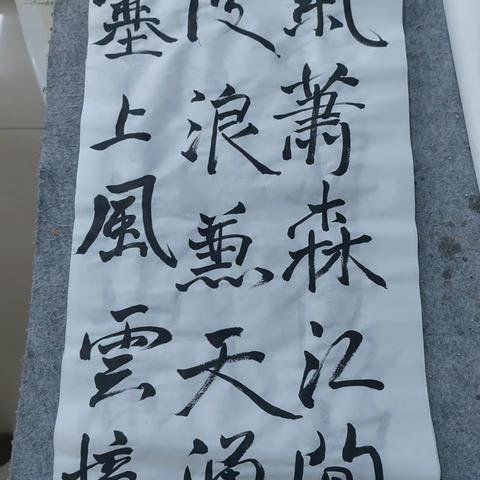 氣蕭森江間
波浪兼天涌
塞上風雲接